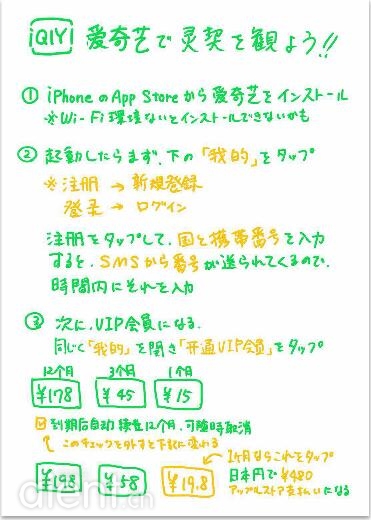 iQIYI 爱奇艺で灵契を観よう!!
① iPhoneのApp Storeから爱奇艺をインストール
※Wi-Fi環境ないとインストールできないかも
② 起動したらまず、下の「我的」をタップ
※注册 → 新規登録
登录 → ログイン
注册をタップして、国と携帯番号を入力
すると、SMSから番号が送られてくるので、
時間内にそれを入力
③ 次に、VIP会員になる.
同じく「我的」を開き「开通VIP会员」をタップ
12个月 3个月 1个月
¥178 ¥45 ¥15
到期后自动续费12个月,可随时取消
このチェックを外すと下記に変わる
1ヶ月ならこれをタップ
¥198 ¥58 ¥19.8
日本円で¥480
アップルストア支払いになる